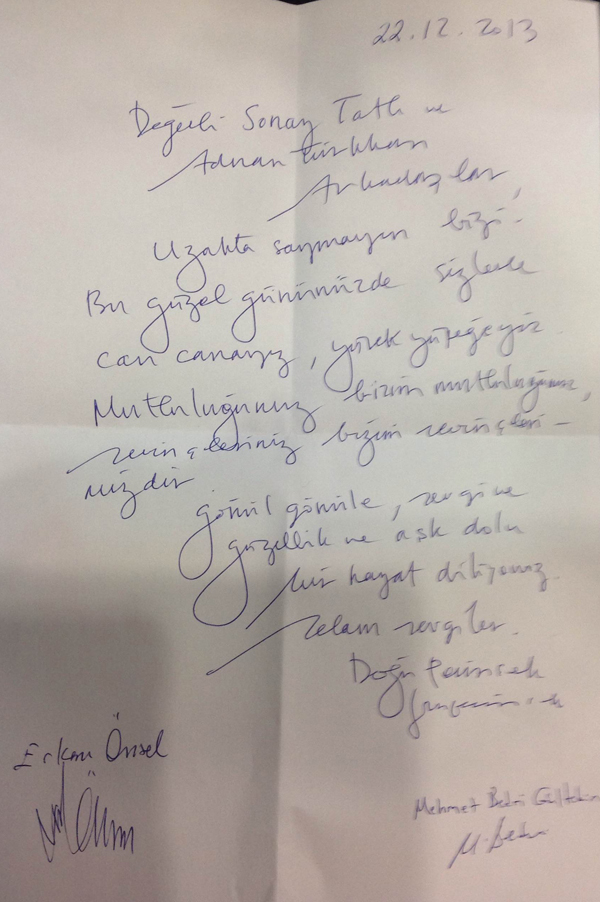 22.12.2013
Değerli Sonay Tatlı ve
Adnan Türkkan
Arkadaşlar,
Uzakta saymayın bizi.
Bu güzel gününüzde sizlerle
can canayız, yürek yüreğeyiz.
Mutluluğunuz bizim mutluluğumuz,
sevinçleriniz bizim sevinçleri-
mizdir
Gönül gönüle, sevgi ve
güzellik ve aşk dolu
bir hayat diliyoruz.
Selam sevgiler.
Doğu Perinçek
Erkan Önsel
Mehmet Bedri Gültekin